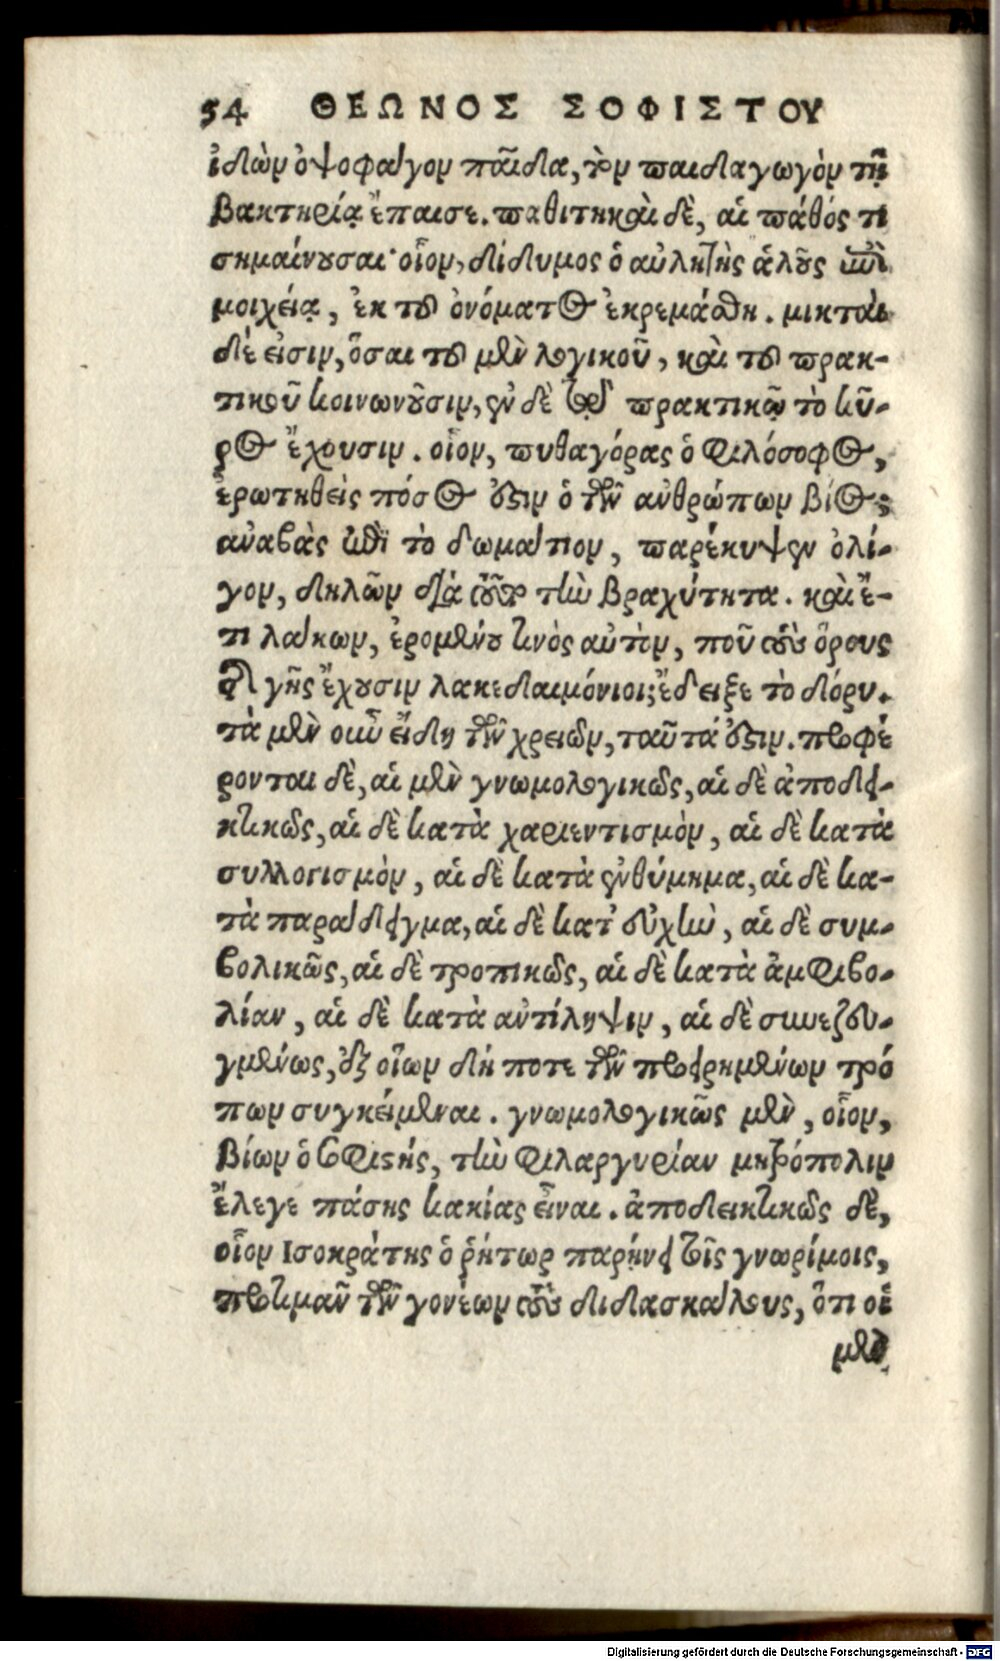 54 ΘΕΩΝΟΣ ΣΟΦΙΣΤΟΥ
ἰδὼν ὀψοφάγον παῖδα, τὸν παιδαγωγὸν τῇ
βακτηρίᾳ ἔπαισε. παθητικαὶ δὲ, αἱ πάθός τι
σημαίνουσαι· οἷον, δίδυμος ὁ αὐλητὴς ἁλοῦς ἐπὶ
μοιχείᾳ, ἐκ τοῦ ὀνόματος ἐκρεμάσθη. μικταὶ
δέ εἰσιν, ὅσαι τοῦ μὲν λογικοῦ, καὶ τοῦ πρακ-
τικοῦ κοινωνοῦσιν, ἐν δὲ τῷ πρακτικῷ τὸ κῦ-
ρος ἔχουσιν. οἷον, πυθαγόρας ὁ φιλόσοφος,
ἐρωτηθεὶς πόσος ἐστὶν ὁ τῶν ἀνθρώπων βίος;
ἀναβὰς ἐπὶ τὸ δωμάτιον, παρέκυψεν ὀλί-
γον, δηλῶν διὰ τοῦτο τὴν βραχύτητα. καὶ ἔ-
τι λάκων, ἐρομένου τινὸς αὐτὸν, ποῦ τοὺς ὅρους
τῆς γῆς ἔχουσιν λακεδαιμόνιοι; ἔδειξε τὸ δόρυ.
τὰ μὲν οὖν εἴδη τῶν χρειῶν, ταῦτά ἐστιν. προφέ
ρονται δὲ, αἱ μὲν γνωμολογικῶς, αἱ δὲ ἀποδει-
κτικῶς, αἱ δὲ κατὰ χαριεντισμὸν, αἱ δὲ κατὰ
συλλογισμὸν, αἱ δὲ κατὰ ἐνθύμημα, αἱ δὲ κα-
τὰ παράδειγμα, αἱ δὲ κατ' εὐχὴν, αἱ δὲ συμ-
βολικῶς, αἱ δὲ τροπικῶς, αἱ δὲ κατὰ ἀμφιβο-
λίαν, αἱ δὲ κατὰ ἀντίληψιν, αἱ δὲ συνεζευ-
γμένως, ἐξ οἵων δή ποτε τῶν προειρημένων τρό
πων συγκείμεναι. γνωμολογικῶς μὲν, οἷον,
βίων ὁ σοφιστής, τὴν φιλαργυρίαν μητρόπολιν
ἔλεγε πάσης κακίας εἶναι. ἀποδεικτικῶς δὲ,
οἷον Ισοκράτης ὁ ῥήτωρ παρῄνει τοῖς γνωρίμοις,
προτιμᾶν τῶν γονέων τοὺς διδασκάλους, ὅτι οἱ
μὲν
Digitalisierung gefördert durch die Deutsche Forschungsgemeinschaft - DFG